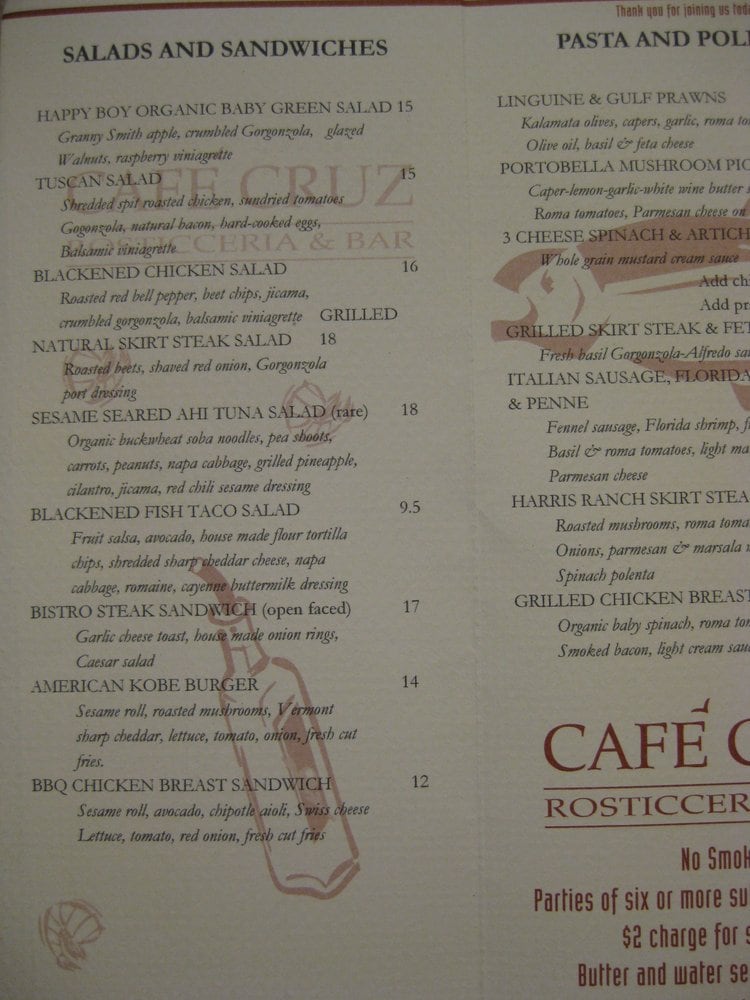 SALADS AND SANDWICHES
HAPPY BOY ORGANIC BABY GREEN SALAD 15
Granny Smith apple, crumbled Gorgonzola, glazed
Walnuts, raspberry viniagrette
TUSCAN SALAD 15
Shredded spit roasted chicken, sundried tomatoes
Gogonzola, natural bacon, hard-cooked eggs,
Balsamic viniagrette
CAFE CRUZ
ROSTICCERIA & BAR
BLACKENED CHICKEN SALAD 16
Roasted red bell pepper, beet chips, jicama,
crumbled gorgonzola, balsamic viniagrette GRILLED
NATURAL SKIRT STEAK SALAD 18
Roasted beets, shaved red onion, Gorgonzola
port dressing
SESAME SEARED AHI TUNA SALAD (rare) 18
Organic buckwheat soba noodles, pea shoots,
carrots, peanuts, napa cabbage, grilled pineapple,
cilantro, jicama, red chili sesame dressing
BLACKENED FISH TACO SALAD 9.5
Fruit salsa, avocado, house made flour tortilla
chips, shredded sharp cheddar cheese, napa
cabbage, romaine, cayenne buttermilk dressing
BISTRO STEAK SANDWICH (open faced) 17
Garlic cheese toast, house made onion rings,
Caesar salad
AMERICAN KOBE BURGER 14
Sesame roll, roasted mushrooms, Vermont
sharp cheddar, lettuce, tomato, onion, fresh cut
fries.
BBQ CHICKEN BREAST SANDWICH 12
Sesame roll, avocado, chipotle aioli, Swiss cheese
Lettuce, tomato, red onion, fresh cut fries
Thank you for joining us
PASTA AND
LINGUINE & GULF PRAWNS
Kalamata olives, capers, garlic, roma
Olive oil, basil & feta cheese
PORTOBELLA MUSHROOM
Caper-lemon-garlic-white wine butter
Roma tomatoes, Parmesan cheese on
3 CHEESE SPINACH &
Whole grain mustard cream sauce
Add
Add
GRILLED SKIRT STEAK &
Fresh basil Gorgonzola-Alfredo
ITALIAN SAUSAGE, FLORIDA
& PENNE
Fennel sausage, Florida shrimp,
Basil & roma tomatoes, light
Parmesan cheese
HARRIS RANCH SKIRT
Roasted mushrooms, roma
Onions, parmesan & marsala
Spinach polenta
GRILLED CHICKEN BREAST
Organic baby spinach, roma
Smoked bacon, light cream
CAFÉ
No
Parties of six or more
$2 charge for
Butter and water